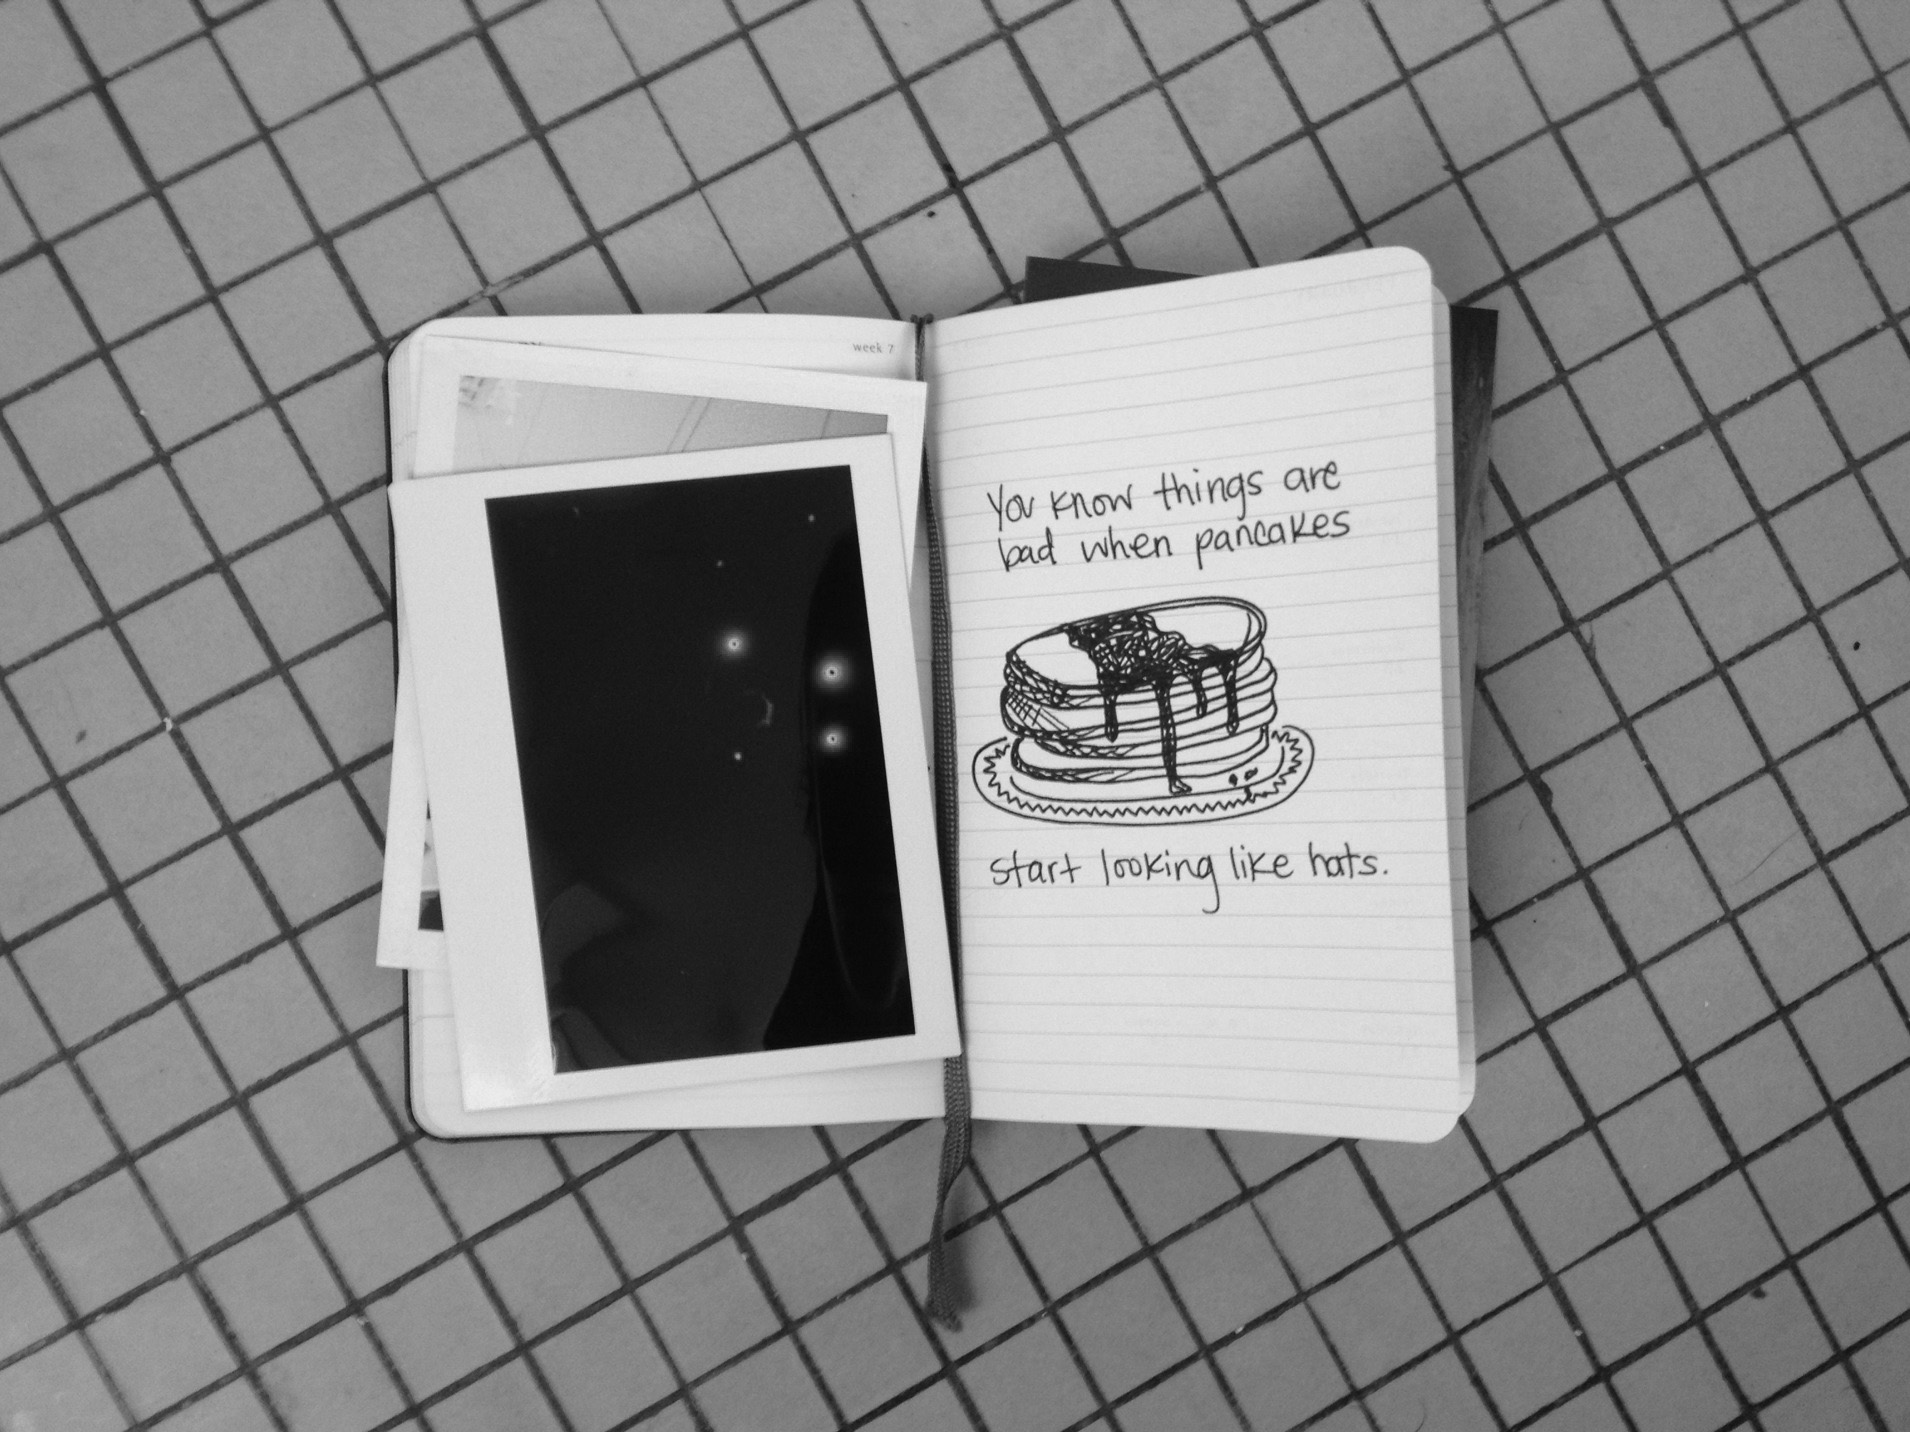 week 7
You know things are
bad when pancakes
start looking like hats.